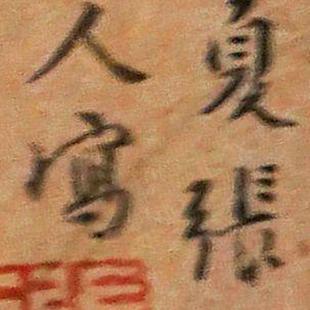 夏張
人寫